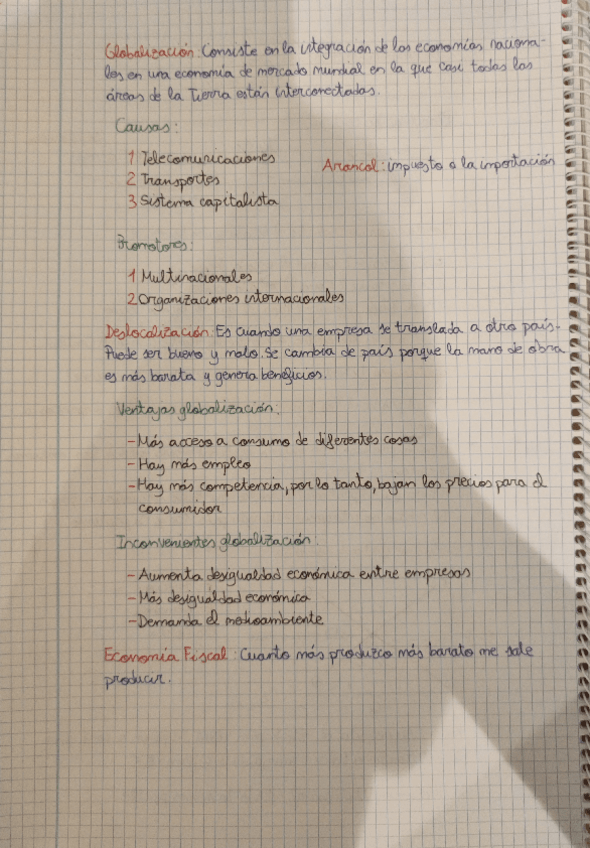 Globalización: Consiste en la integración de las economías naciona-
les en una economía de mercado mundial en la que casi todas las
áreas de la Tierra están interconectadas.
Causas:
1 Telecomunicaciones
Arancel: impuesto a la importación
2 Transportes
3 Sistema capitalista
Promotores:
1 Multinacionales
2 Organizaciones internacionales
Deslocalización: Es cuando una empresa se translada a otro país.
Puede ser bueno y malo. Se cambia de país porque la mano de obra
es más barata y genera beneficios.
Ventajas globalización:
- Más acceso a consumo de diferentes cosas
- Hay más empleo
- Hay más competencia, por lo tanto, bajan los precios para el
consumidor
Inconvenientes globalización:
- Aumenta desigualdad económica entre empresas
- Más desigualdad económica
- Demanda el medioambiente
Economía Fiscal: Cuanto más produzco más barato me sale
producir.